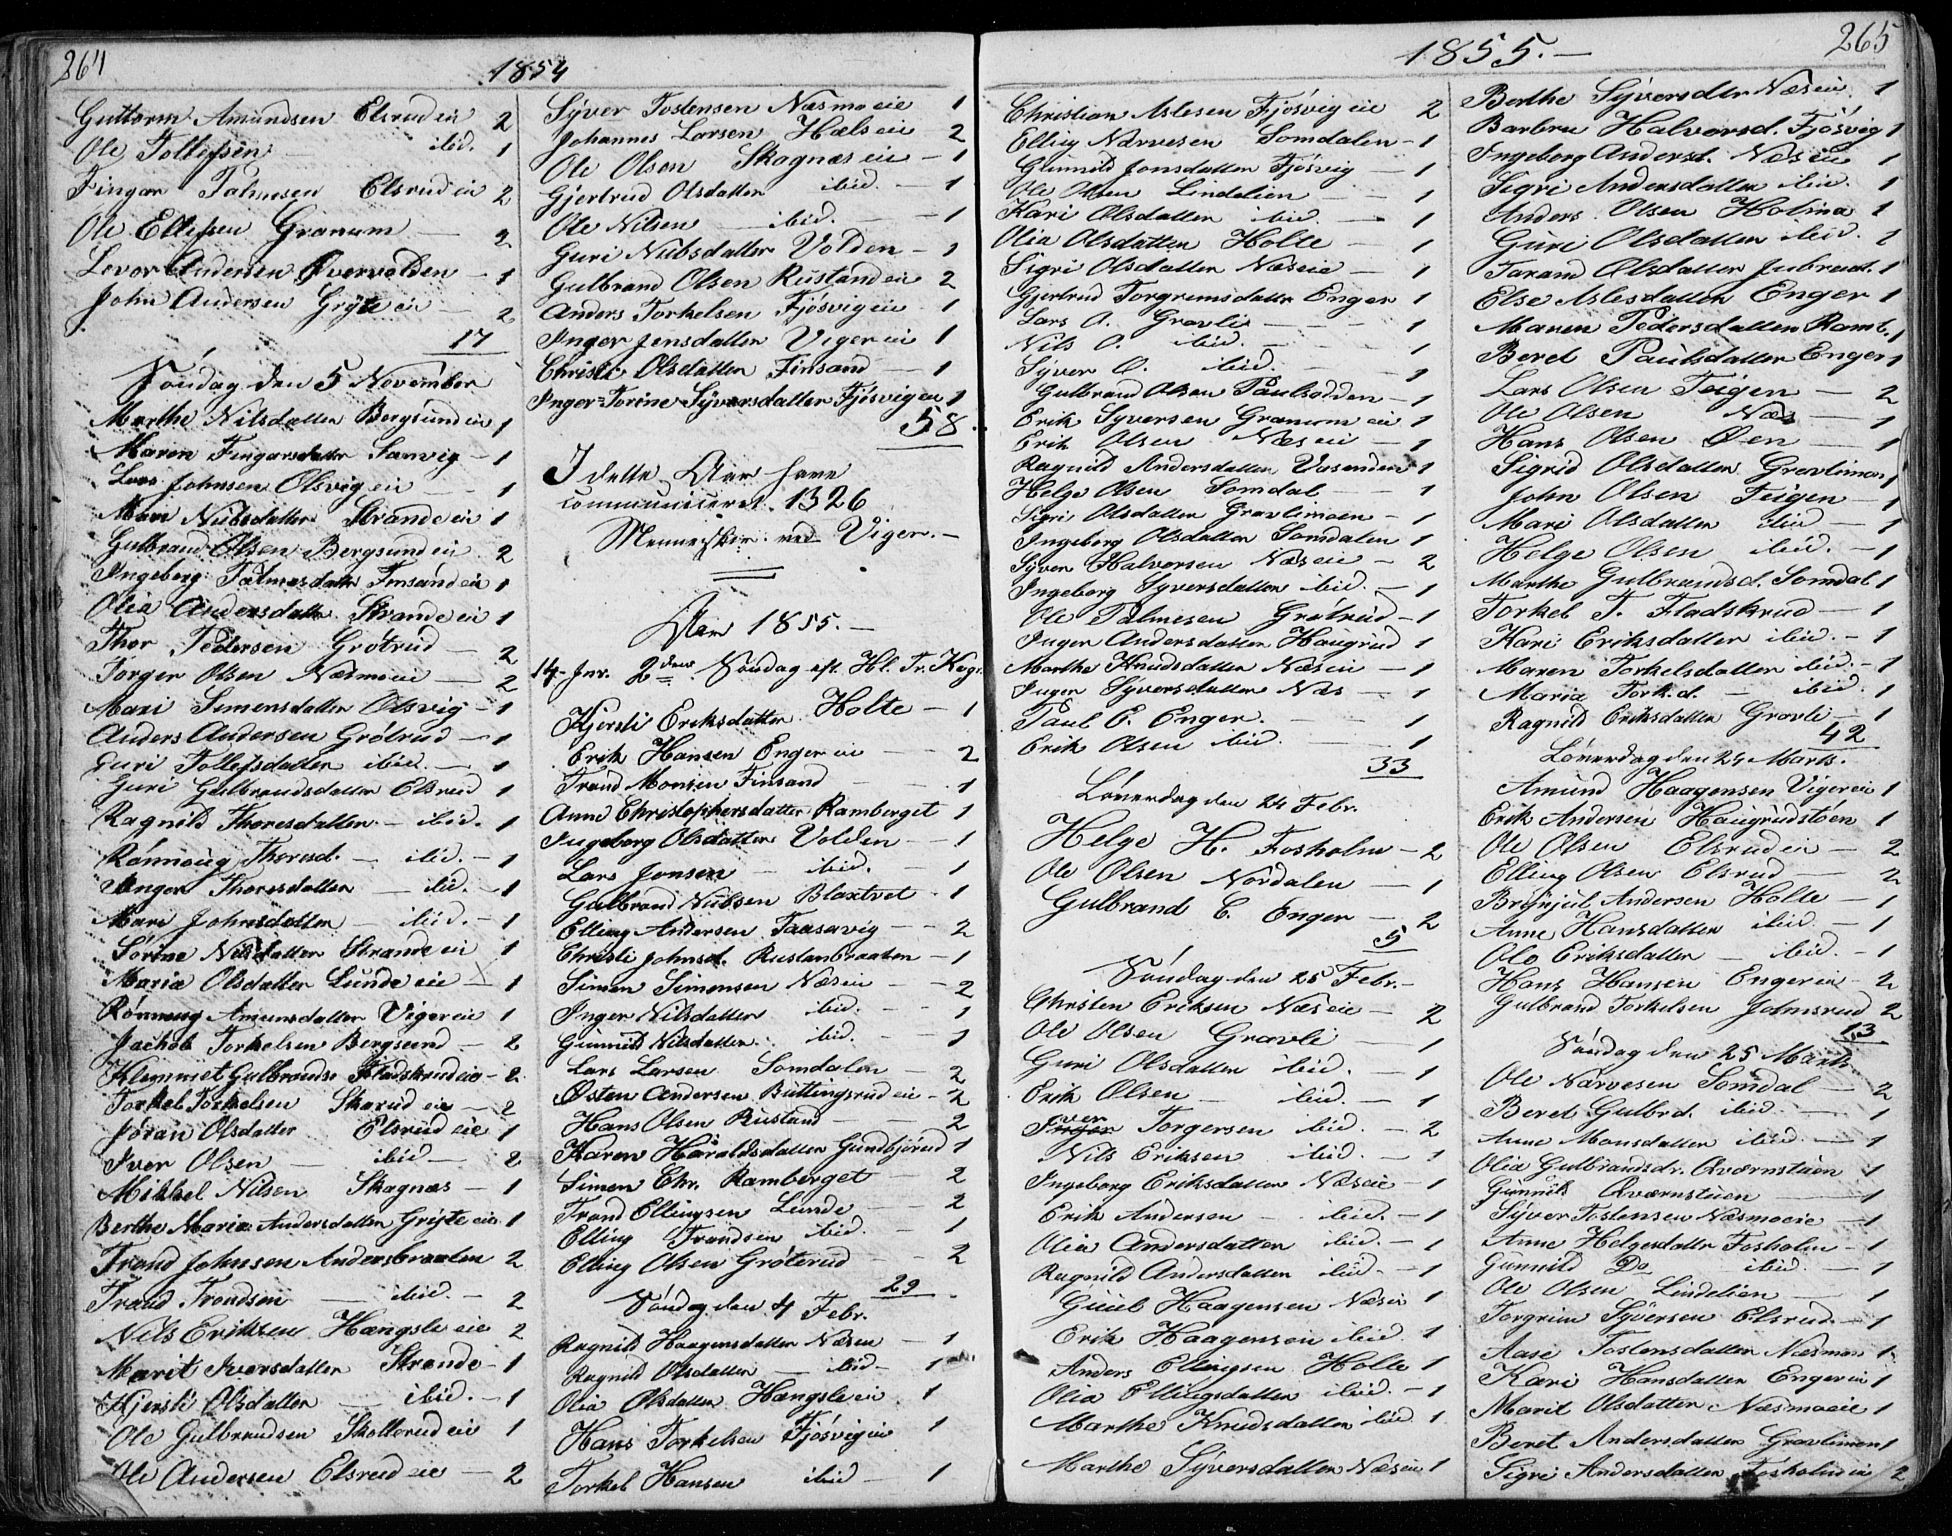 264
1854
Guttorm Amundsen Elsrud eie 2
Ole Tollefsen ibid. 1
Fingar Palmesen Elsrud eie 2
Ole Ellefsen Granum — 2
Levor Andersen Øvervolden — 1
John Andersen Gryte eie — 2
17
Søndag den 5 November
Marthe Nilsdatter Bergsund eie 1
Maren Fingarsdatter Sanvig — 1
Lars Johnsen Olsvig eie — 1
Mari Nubsdatter Strande eie 1
Gulbrand Olsen Bergsund eie 2
Ingeberg Palmesdatter Finsand eie 1
Olia Andersdatter Strande eie 1
Thor Pedersen Grøtrud — 2
Torger Olsen Næsmoeie — 2
Mari Simensdatter Olsvig — 1
Anders Andersen Grøtrud — 1
Guri Tollefsdatter ibid. — 1
Guri Gulbrandsdatter Elsrud 1
Ragnild Thoresdatter — ibid. 1
Rønnoug Thoresd. — ibid. — 1
Inger Thoresdatter — ibid. — 1
Mari Johnsdatter ibid. — 1
Sørine Nilsdatter Strande eie 1
Maria Olsdatter Lunde eie — 1
Rønnoug Amunsdatter Viger eie 1
Jachob Torkelsen Bergsund — 2
Klemmet Gulbrands. Fladskrud eie — 2
Torkel Torkelsen Skarud eie — 2
Jøran Olsdatter Elsrud eie 1
Iver Olsen — ibid — 2
Mikkel Nilsen Skagnæs — 1
Berthe Maria Andersdatter Gryte eie 1
Trond Johnsen Andersbraaten 2
Trond Trondsen — ibid. — 2
Nils Eriksen Hængsle eie 2
Marit Iversdatter Strande — 1
Kjersti Olsdatter — ibid. — 1
Ole Gulbrandsen Skollerud eie 1
Ole Andersen Elsrud eie — 2
Syver Tostensen Næsmoeie 1
Johannes Larsen Hæls eie 2
Ole Olsen Skagnæs eie — 1
Gjertrud Olsdatter ibid. — 1
Ole Nilsen — ibid. — 1
Guri Nubsdatter Volden — 1
Gulbrand Olsen Rustand eie 2
Anders Torkelsen Fjøsvig eie 1
Inger Jensdatter Viger eie 1
Christi Olsdatter Finsand — 1
Inger Torine Syversdatter Fjøsvig eie 1
58.
I dette Aar have
communiceret 1326
Mennesker ved Viger. —
Aar 1855. —
14. Jnr. 2den Søndag eft. Hl. Tr. Kong.
Kjersti Eriksdatter Holte — 1
Erik Hansen Enger eie — 2
Trond Monsen Finsand — 1
Anne Christophersdatter Ramberget 1
Ingeborg Olsdatter Volden — 1
Lars Jonsen — ibid. 1
Gulbrand Nubsen Blaxtvet 1
Elling Andersen Taasavig — 2
Christi Johnsd. Rustanbraaten — 1
Simen Simensen Næseie — 2
Inger Nilsdatter ibid. — 1
Gunnild Nilsdatter ibid. — 1
Lars Larsen Somdalen — 2
Østen Andersen Buttingsrud eie — 2
Hans Olsen Rustand — 2
Karen Haraldsdatter Gundbjørud 1
Simen Chr. Ramberget — 2
Trond Ellingsen Lunde — 2
Elling Trondsen ibid. 1
Elling Olsen Grøterud — 2
29
Søndag den 4 Febr.
Ragnild Haagensdatter Næseie — 1
Ragnild Olsdatter — ibid — 1
Olia Olsdatter Hængsle eie 1
Hans Torkelsen Fjøsvig eie 1
Torkel Hansen ibid — 1
1855. —
265
Christian Aslesen Fjøsvig eie 2
Elling Narvesen Somdalen — 1
Gunnild Jonsdatter Fjøsvig — 1
Ole Olsen Lindelien — 1
Kari Olsdatter ibid. — 1
Olia Olsdatter Holte — 1
Sigri Olsdatter Næseie — 1
Gjertrud Torgrimsdatter Enger 1
Lars O. Gravli — 1
Nils O. ibid. — 1
Syver O. ibid. — 1
Gulbrand Olsen Paulsodden — 1
Erik Syversen Granum eie 1
Erik Olsen Næseie — 1
Ragnild Andersdatter Vasenden 1
Helge Olsen Somdal — 1
Sigri Olsdatter Gravlimoen — 1
Ingeborg Olsdatter Somdalen 1
Syver Halvorsen Næseie — 2
Ingeborg Syversdatter ibid. — 1
Ole Palmesen Grøtrud — 1
Inger Andersdatter Haugrud 1
Marthe Knudsdatter Næseie — 1
Inger Syversdatter Næs — 1
Paul E. Enger. — 1
Erik Olsen ibid. — 1
33
Løverdag den 24 Febr.
Helge H. Fosholm — 2
Ole Olsen Nordalen — 1
Gulbrand C. Enger — 2
5
Søndag den 25 Febr. —
Christen Eriksen Næseie — 2
Ole Olsen Gravli — 1
Guri Olsdatter ibid. — 1
Erik Olsen — ibid. — 1
Iver Torgersen ibid. — 2
Nils Eriksen ibid. — 1
Ingeborg Eriksdatter Næseie — 1
Erik Andersen — ibid. — 1
Olia Andersdatter ibid. — 1
Ragnild Andersdatter ibid. — 1
Guul Haagensen Næseie 1
Erik Haagensen ibid. 1
Anders Ellingsen Holte 1
Olia Ellingsdatter ibid. — 1
Marthe Knudsdatter ibid. 1
Marthe Syversdatter Næseie 1
Berthe Syversdtr Næseie 1
Barbru Halvorsd. Fjøsvig 1
Ingeborg Andersd. Næseie 1
Sigri Andersdatter ibid. 1
Anders Olsen Holma 1
Guri Olsdatter ibid. 1
Taran Olsdatter Jubreut. 1
Else Aslesdatter Enger 1
Maren Pedersdatter Ramb. 1
Beret Paulsdatter Enger 1
Lars Olsen Teigen — 2
Ole Olsen Næs — 1
Hans Olsen Øen — 1
Sigrid Olsdatter Gravlimoen 1
John Olsen Teigen — 1
Mari Olsdatter ibid — 1
Helge Olsen ibid. — 1
Marthe Gulbrandsd. Somdal 1
Torkel T. Fladskrud — 1
Kari Eriksdatter ibid. — 1
Maren Torkelsdatter ibid. — 1
Maria Tork.d. — ibid. 1
Ragnild Eriksdatter Gravli — 1
42
Løverdag den 24 Marts.
Amund Haagensen Viger eie 1
Erik Andersen Haugrudstøen 1
Ole Olsen Elsrud eie — 2
Elling Olsen Elsrud — 2
Brynjul Andersen Holte — 1
Anne Hansdatter ibid. — 1
Ole Eriksdatter — ibid. — 1
Hans Hansen Enger eie — 2
Gulbrand Torkelsen Johnsrud 2
13
Søndag den 25 Marts
Ole Narvesen Somdal — 2
Beret Gulbrd. ibid. — 1
Anne Monsdatter ibid. — 1
Olia Gulbrandsdr. Qværnstuen 1
Gunnild Qværnstuen 1
Syver Tostensen Næsmoeie — 1
Anne Helgesdatter Fosholm — 1
Gunnild Do ibid. — 1
Ole Olsen Lindelien — 1
Torgrim Syversen Elsrud — 1
Aase Tostensdatter Næsmoe 1
Kari Hansdatter Enger eie 1
Marit Olsdatter Næsmoeie 1
Beret Andersdatter Gravlimoen 1
Sigri Andersdatter Fosholm eie 2